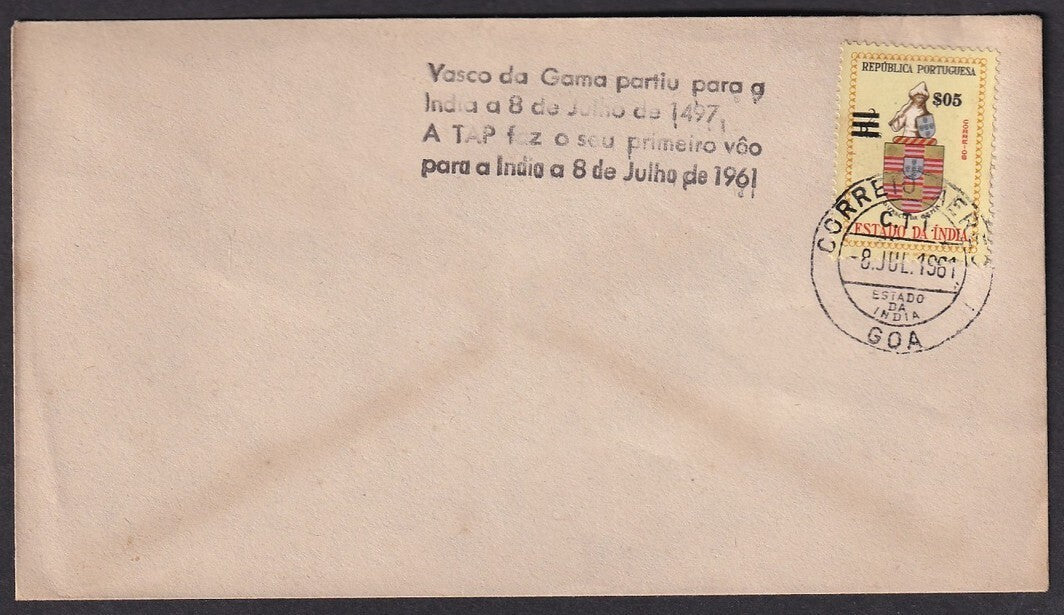 Vasco da Gama partiu para a
India a 8 de Julho de 1497,
A TAP faz o seu primeiro vôo
para a India a 8 de Julho de 1961
REPÚBLICA PORTUGUESA
$05
ESTADO DA ÍNDIA
CORREIO AEREO
C.T.T.
-8.JUL.1961
ESTADO
DA
INDIA
GOA